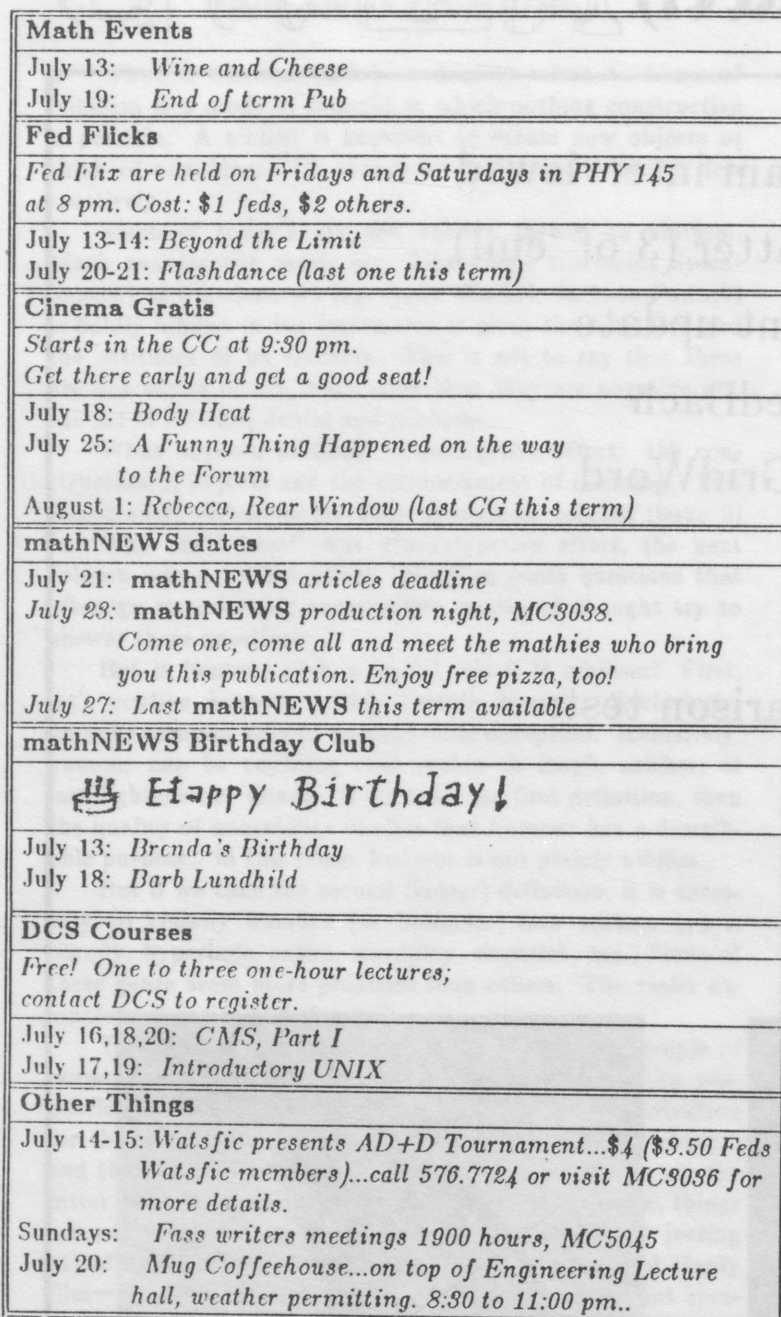 Math Events
July 13: Wine and Cheese
July 19: End of term Pub
Fed Flicks
Fed Flix are held on Fridays and Saturdays in PHY 145
at 8 pm. Cost: $1 feds, $2 others.
July 13-14: Beyond the Limit
July 20-21: Flashdance (last one this term)
Cinema Gratis
Starts in the CC at 9:30 pm.
Get there early and get a good seat!
July 18: Body Heat
July 25: A Funny Thing Happened on the way
to the Forum
August 1: Rebecca, Rear Window (last CG this term)
mathNEWS dates
July 21: mathNEWS articles deadline
July 23: mathNEWS production night, MC3038.
Come one, come all and meet the mathies who bring
you this publication. Enjoy free pizza, too!
July 27: Last mathNEWS this term available
mathNEWS Birthday Club
Happy Birthday!
July 13: Brenda's Birthday
July 18: Barb Lundhild
DCS Courses
Free! One to three one-hour lectures;
contact DCS to register.
July 16,18,20: CMS, Part I
July 17,19: Introductory UNIX
Other Things
July 14-15: Watsfic presents AD+D Tournament...$4 ($3.50 Feds
Watsfic members)...call 576.7724 or visit MC3036 for
more details.
Sundays: Fass writers meetings 1900 hours, MC5045
July 20: Mug Coffeehouse...on top of Engineering Lecture
hall, weather permitting. 8:30 to 11:00 pm..